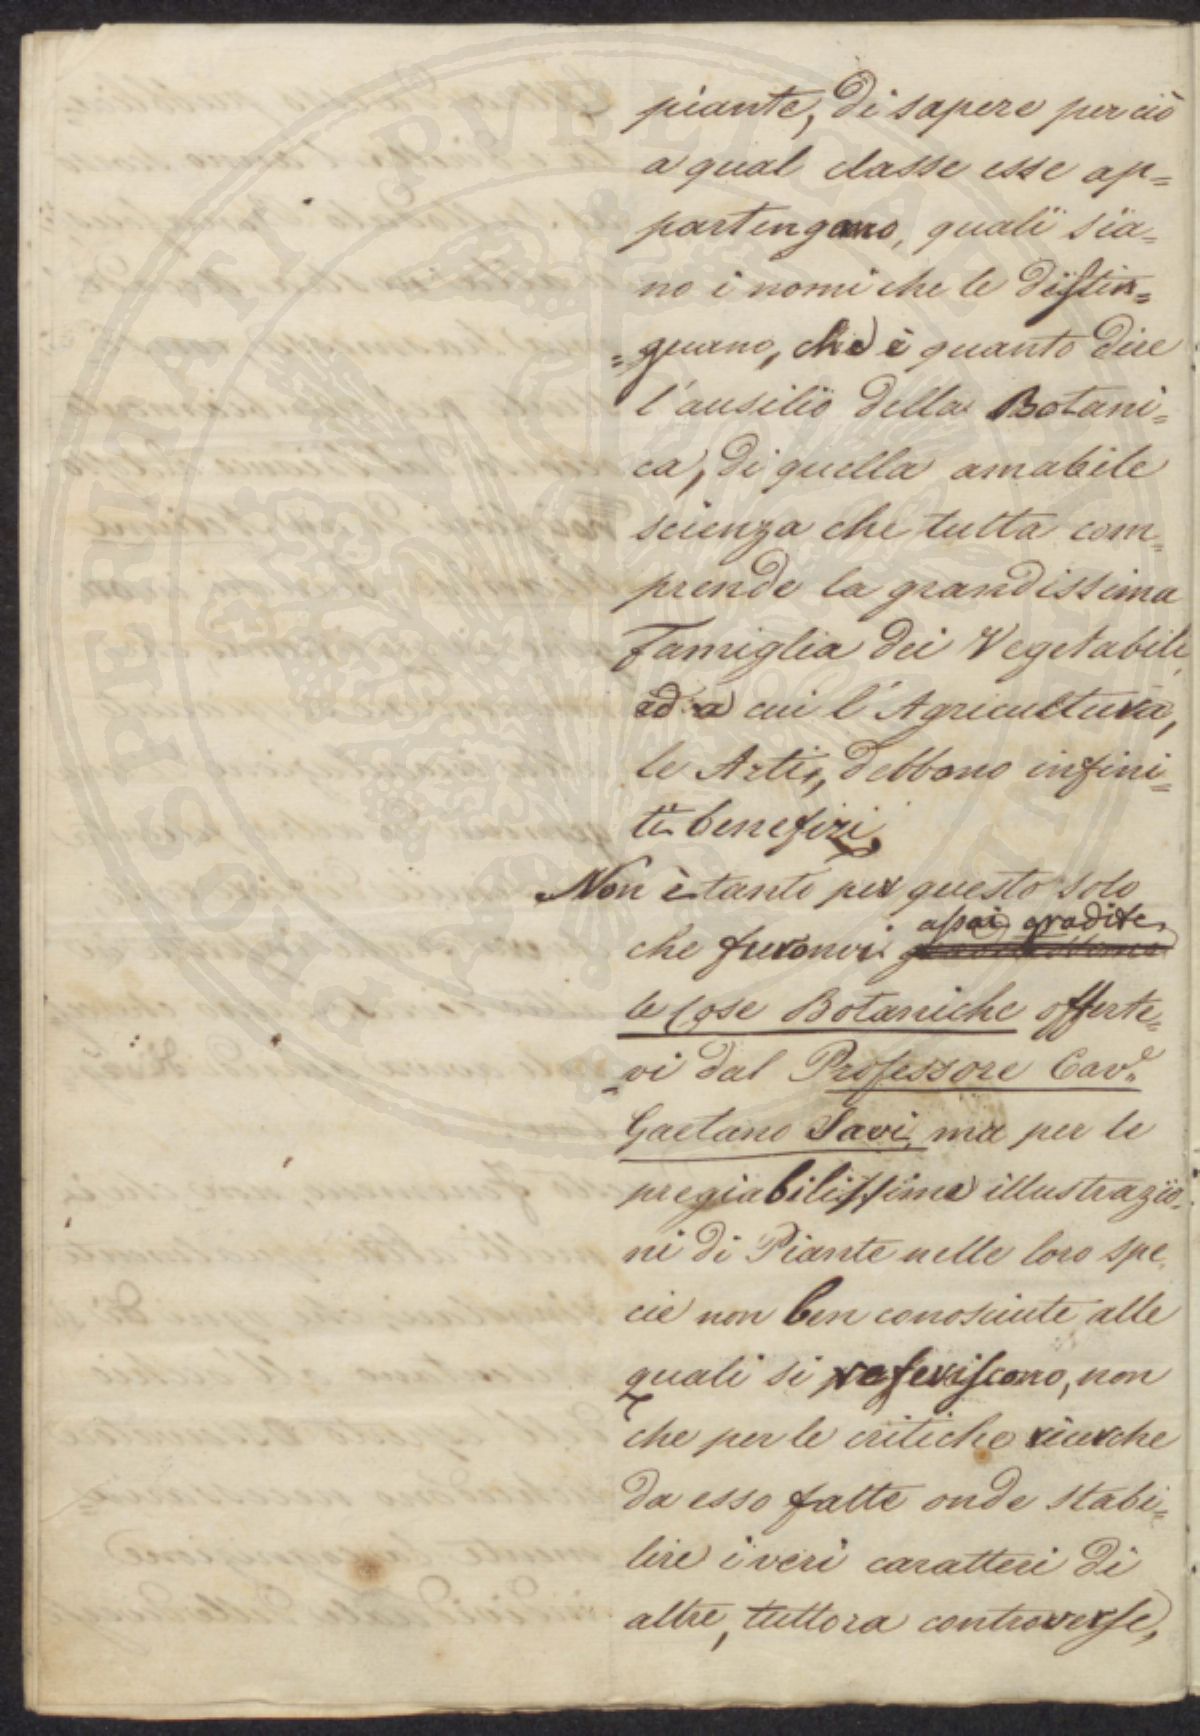 piante, di sapere perciò
a qual classe esse ap=
partengano, quali sia=
no i nomi che le distin=
=guano, che è quanto dire
l'ausilio della Botani=
ca, di quella amabile
scienza che tutta com=
prende la grandissima
Famiglia dei Vegetabili,
ed a cui l'Agricultura,
le Arti, debbono infini=
ti benefizi.
Non è tanto per questo solo
assai gradite
che furonvi
le Cose Botaniche offerte=
=vi dal Professore Cav.e
Gaetano Savi, ma per le
pregiabilissime illustrazio=
ni di Piante nelle loro spe=
cie non ben conosciute alle
quali si referiscono, non
che per le critiche ricerche
da esso fatte onde stabi=
lire i veri caratteri di
altre, tuttora controverse,
PROSPERITATI PVBLICAE